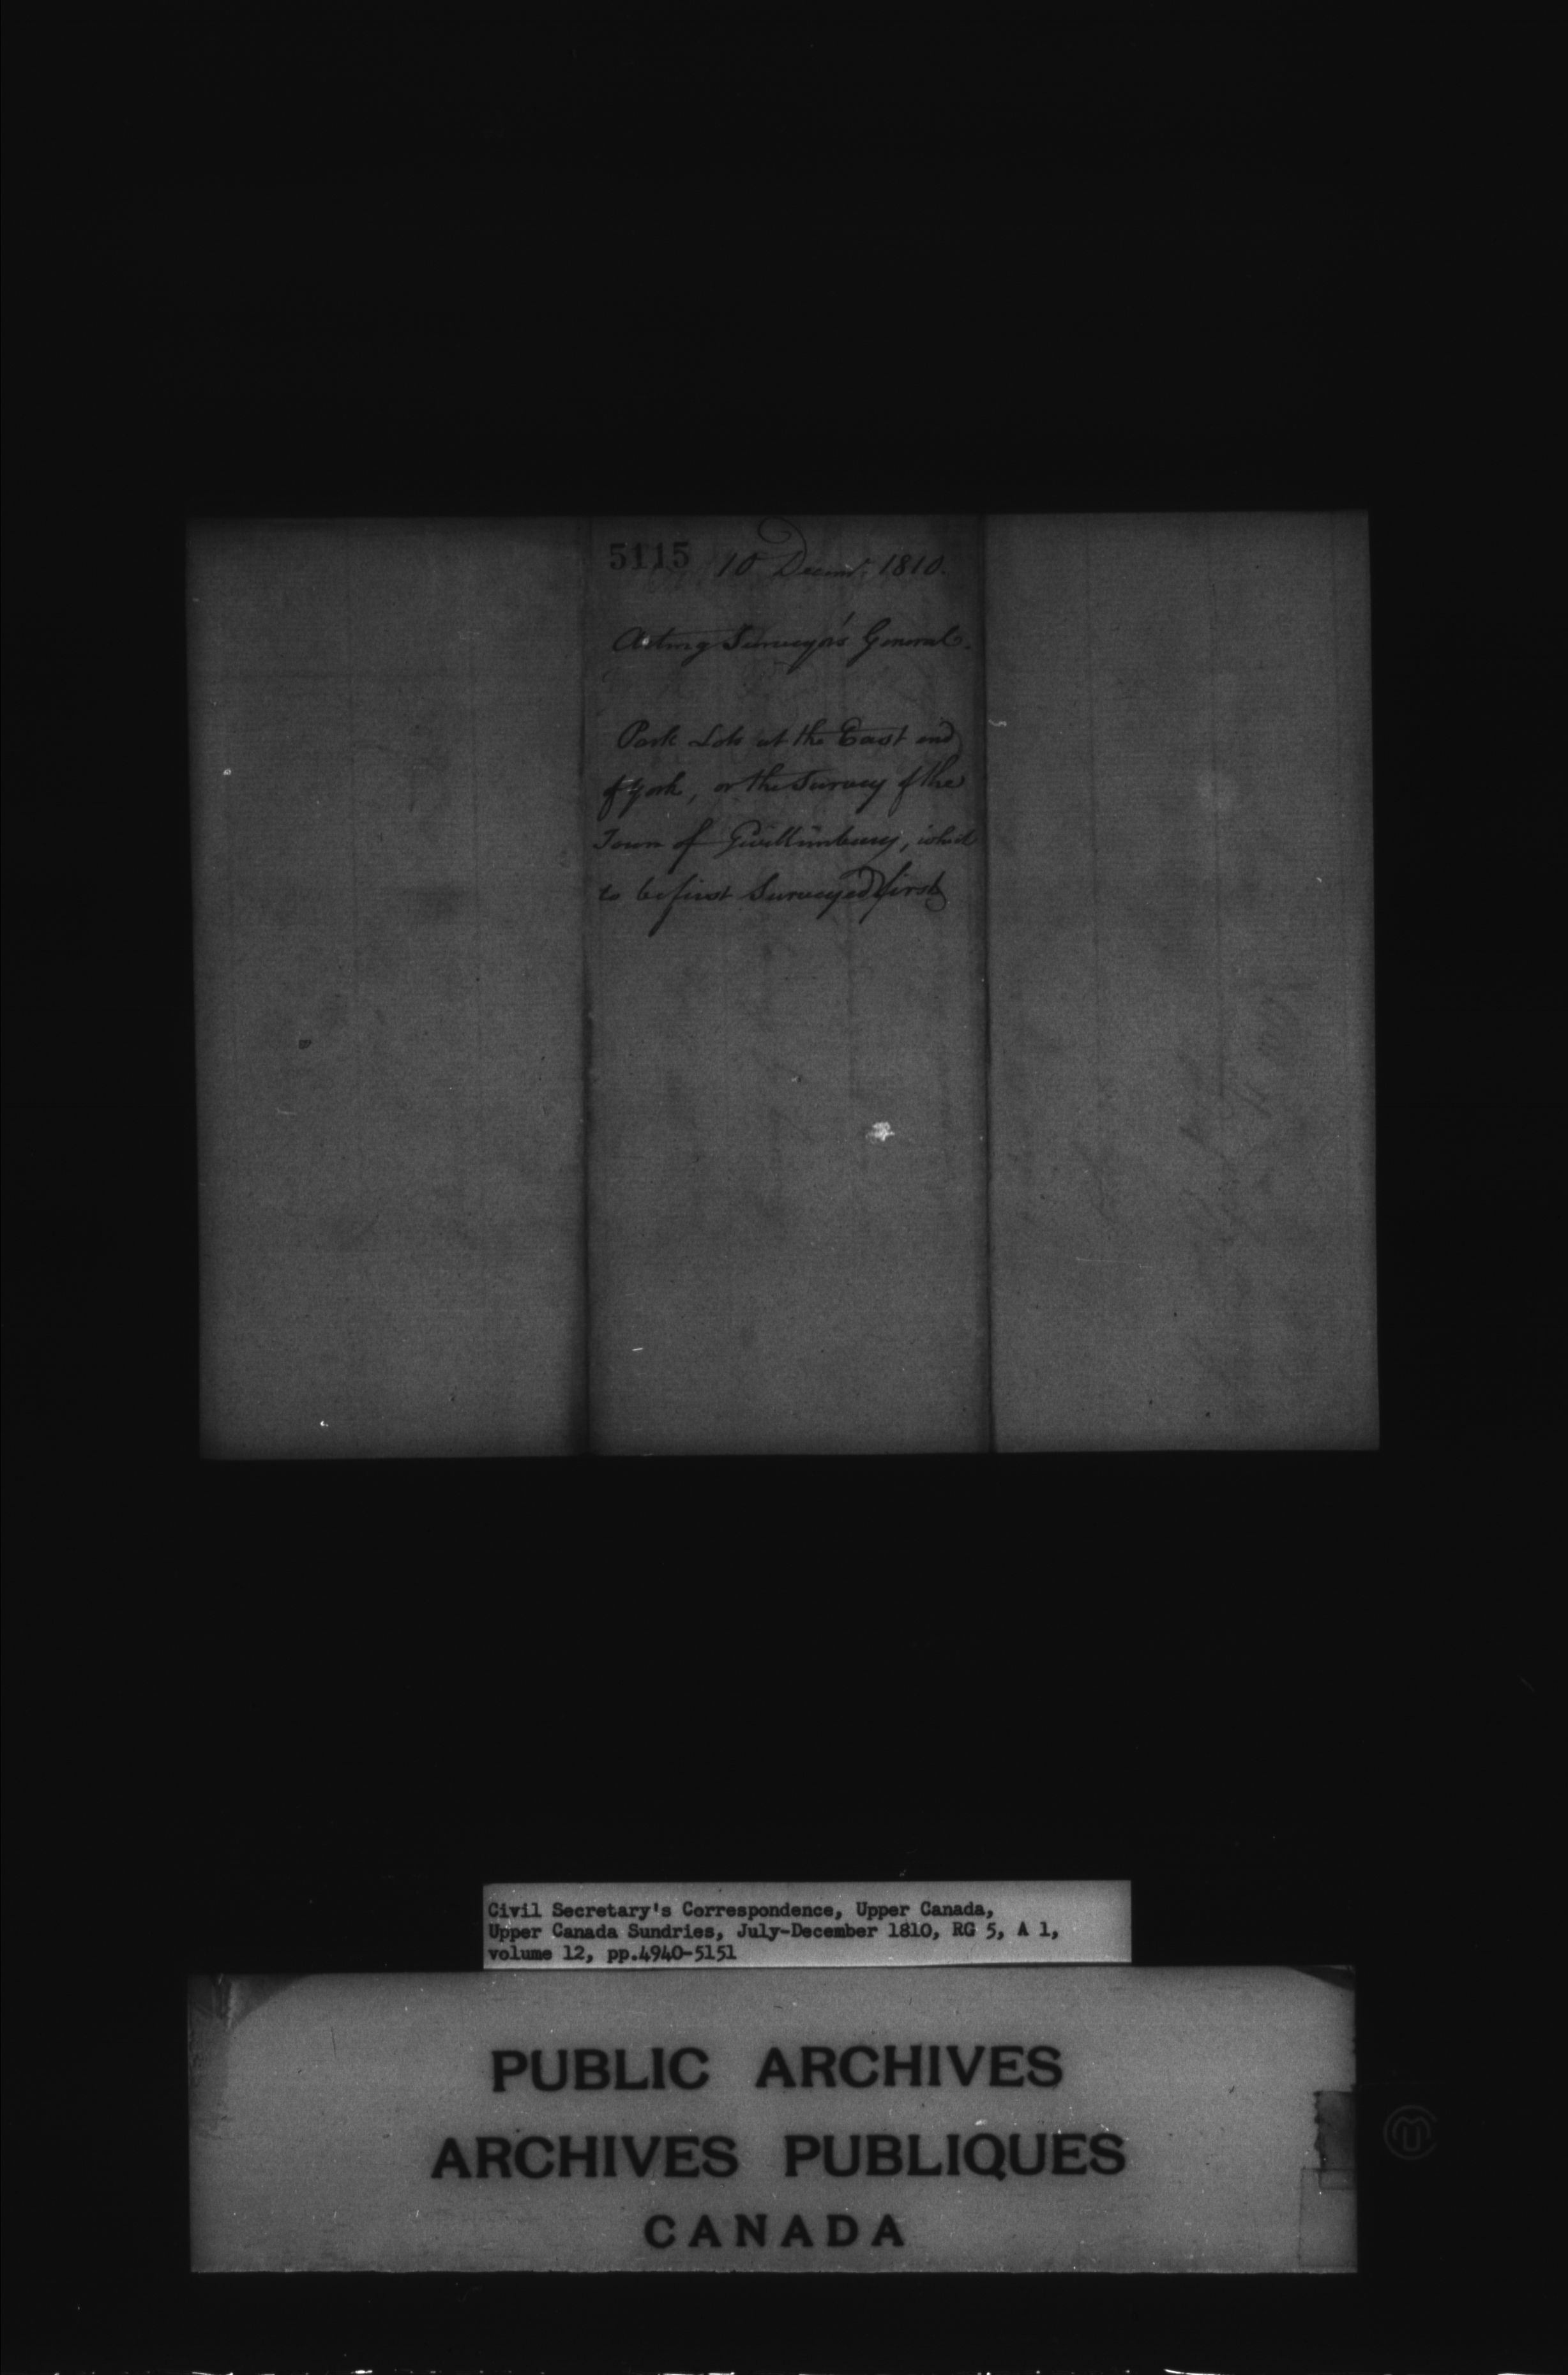 5115 10 Decem.r 1810.
Acting Surveyor's General.
Park Lots at the East end
of York, or the Survey of the
Town of Gwillimbury, which
to be first Surveyed first
Civil Secretary's Correspondence, Upper Canada,
Upper Canada Sundries, July-December 1810, RG 5, A 1,
volume 12, pp.4940-5151
PUBLIC ARCHIVES
ARCHIVES PUBLIQUES
CANADA